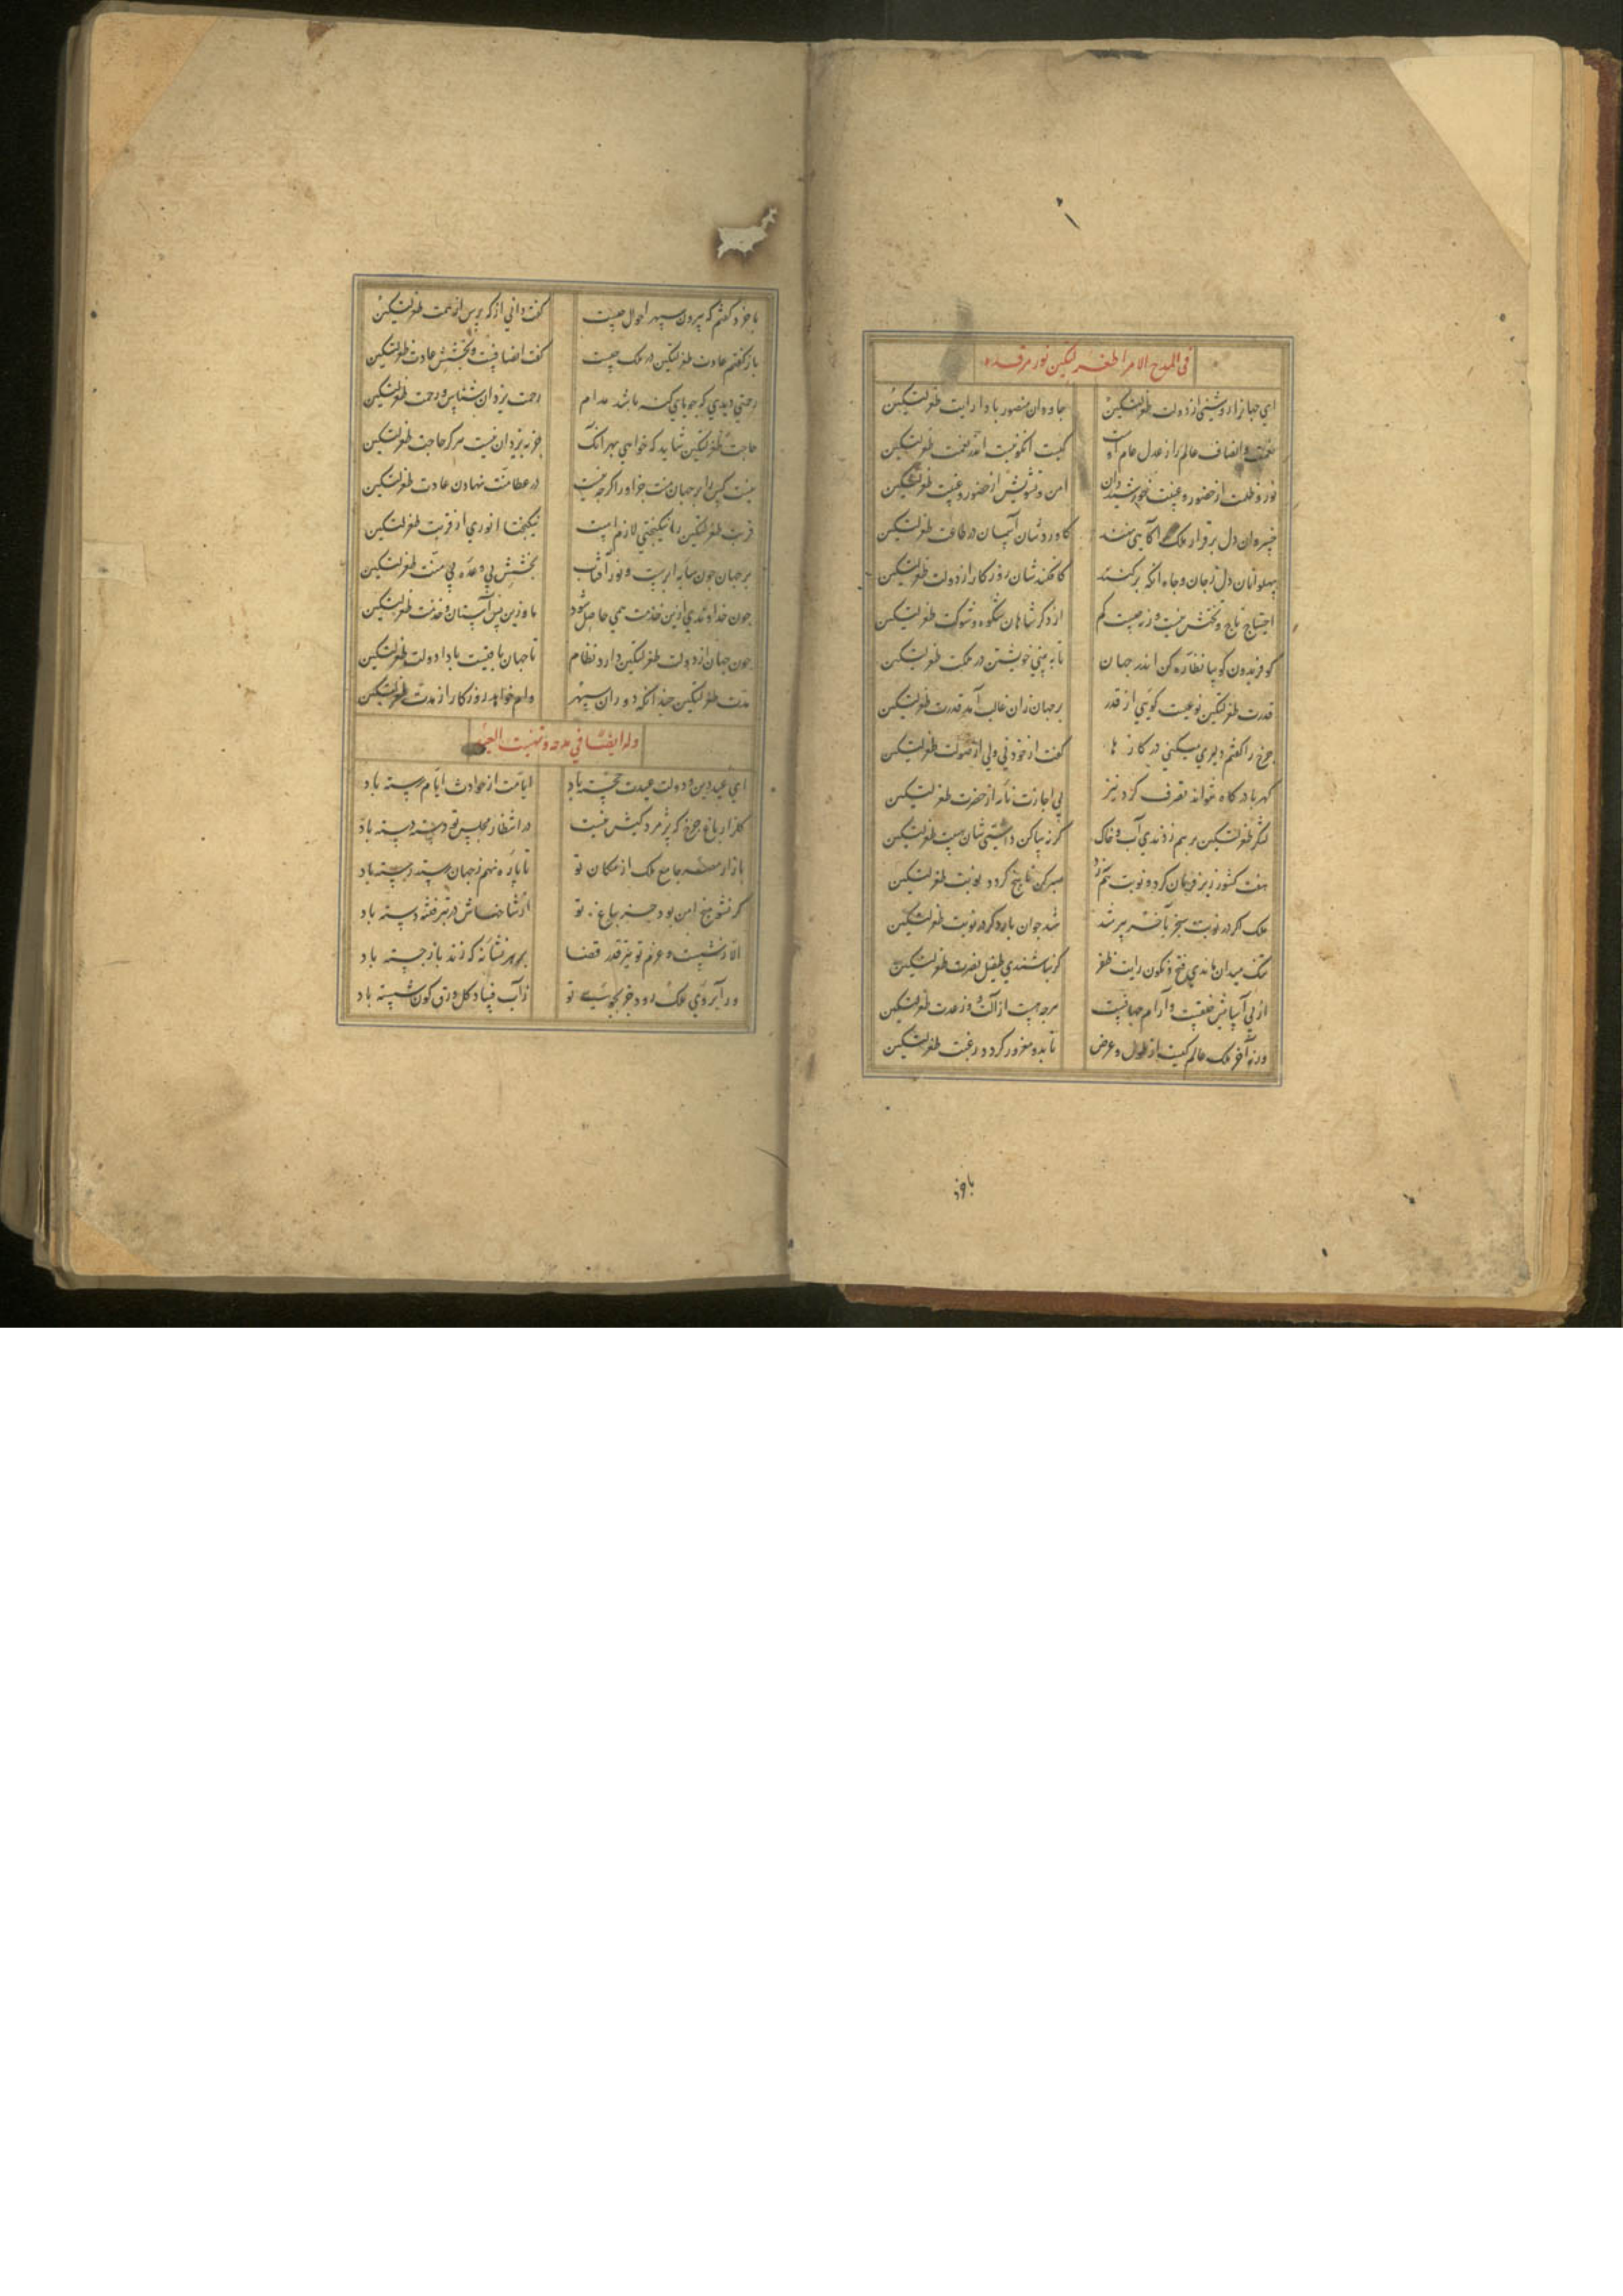 في المدح الامرا طغرلتكين نور مرقده
اي جهانرا روشنی از دولت طغرلتکین جاودان منصور بادا رایت طغرلتکین
نعمت و انصاف عالم را ز عدل عام او کیست انکو نیست اندر نعمت طغرلتکین
نور و ظلمت از حضور و غیبت خورشید دان امن و تشویش از حضور و غیبت طغرلتکین
خسروان دل برقرار ملک آنگاهی نهند کاورد شان آسمان در طاعت طغرلتکین
پهلوانان دل ز جان و جاه انکه برکنند کافکند شان روزکار از دولت طغرلتکین
احتیاج تاج و تختش نیست ور نه چیست کم از دکر شاهان شکوه و شوکت طغرلتکین
کو فریدون کو بیا نظاره کن اندر جهان تا به بینی خویشتن در ملکت طغرلتکین
قدرت طغرلتکین نوعیست کویی از قدر بر جهان زان غالب آمد قدرت طغرلتکین
چرخ را کفتم دلیری میکنی در کارها کفت از خود نی ولی از صولت طغرلتکین
کهربا در کاه نتواند تصرف کرد نیز بی اجازت نامه از حضرت طغرلتکین
لشکر طغرلتکین برهم زدندی آب و خاک کر نه ساکن داشتی شان هیبت طغرلتکین
هفت کشور زیر فرمان کرد و نوبت هم نزد صبر کن تا پنج کردد نوبت طغرلتکین
ملک اکر در نوبت سنجر بآخر پیر شد شد جوان بار دکر در نوبت طغرلتکین
تنک میدان ماندی فتح و نکون رایت ظفر کر نباشندی طفیل نصرت طغرلتکین
از پی آسایش خلقست و آرام جهانست هرچه هست از آلت و از عدت طغرلتکین
ورنه آخر ملک عالم کیست با طول و عرض تا بدو مغرور کردد رغبت طغرلتکین
باخرد
باخرد کفتم که بیرون سپهر احوال چیست کفت دانی از که پرس از همت طغرلتکین
باز کفتم عادت طغرلتکین در ملک چیست کفت انصافست و بخشش عادت طغرلتکین
رحمتی دیدی که جویای کنه باشد مدام رحمت یزدان شناس و رحمت طغرلتکین
حاجت طغرلتکین شاید که خواهی بهر انک جز به یزدان نیست هرکز حاجت طغرلتکین
منت کس را بر جهان منت جز او را کرچه نیست در عطا منت نهادن عادت طغرلتکین
قربت طغرلتکین را نیکبختی لازم است نیکبختا انوری از قربت طغرلتکین
بر جهان چون سایه ابرست و نور آفتاب بخشش بی وعده بی منت طغرلتکین
چون خداوندی ازین خدمت همی حاصل شود ما و زین پس آستان و خدمت طغرلتکین
چون جهان از دولت طغرلتکین دارد نظام تا جهان باقیست بادا دولت طغرلتکین
مدت طغرلتکین چندانکه دوران سپهر وام خواهد روزکار از مدت طغرلتکین
وله ایضا في مدحه و تهنیت العید
ای عید دین و دولت عیدت خجسته باد ایامت از حوادث ایام رسته باد
کلزار باغ چرخ که پژمردکیش نیست در انتظار مجلس تو دسته دسته باد
بازار مصر جامع ملک از مکان تو تا پاره نهم ز جهان رسته رسته باد
کر نشو بیخ امن بود جز بباغ تو از شاخهاش در تبر فتنه دسته باد
الا ز شست و عزم تو تیر قدر قضا بر هر نشانه که زند باز جسته باد
ور آبروی ملک رود جز بجوی تو ز آب فساد کل ورق کون شسته باد